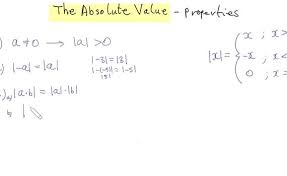 The Absolute Value - properties
) a≠0 → |a| >0
) |-a| = |a|   |-3| = |3|
|-(-5)| = |-5|
|5|
) a) |a·b| = |a|·|b|
b) |
|x| = { x ; x>
-x ; x<
0 ; x=